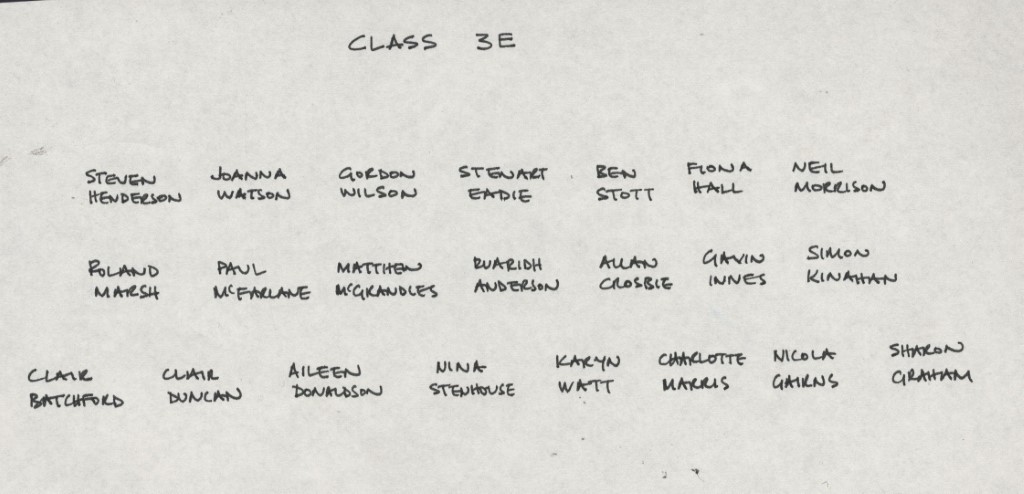 CLASS 3E
STEVEN JOANNA GORDON STEWART BEN FIONA NEIL
HENDERSON WATSON WILSON EADIE STOTT HALL MORRISON
ROLAND PAUL MATTHEW RUARIDH ALLAN GAVIN SIMON
MARSH McFARLANE McGRANDLES ANDERSON CROSBIE INNES KINAHAN
CLAIR CLAIR AILEEN NINA KARYN CHARLOTTE NICOLA SHARON
BATCHFORD DUNCAN DONALDSON STENHOUSE WATT MARRIS GAIRNS GRAHAM